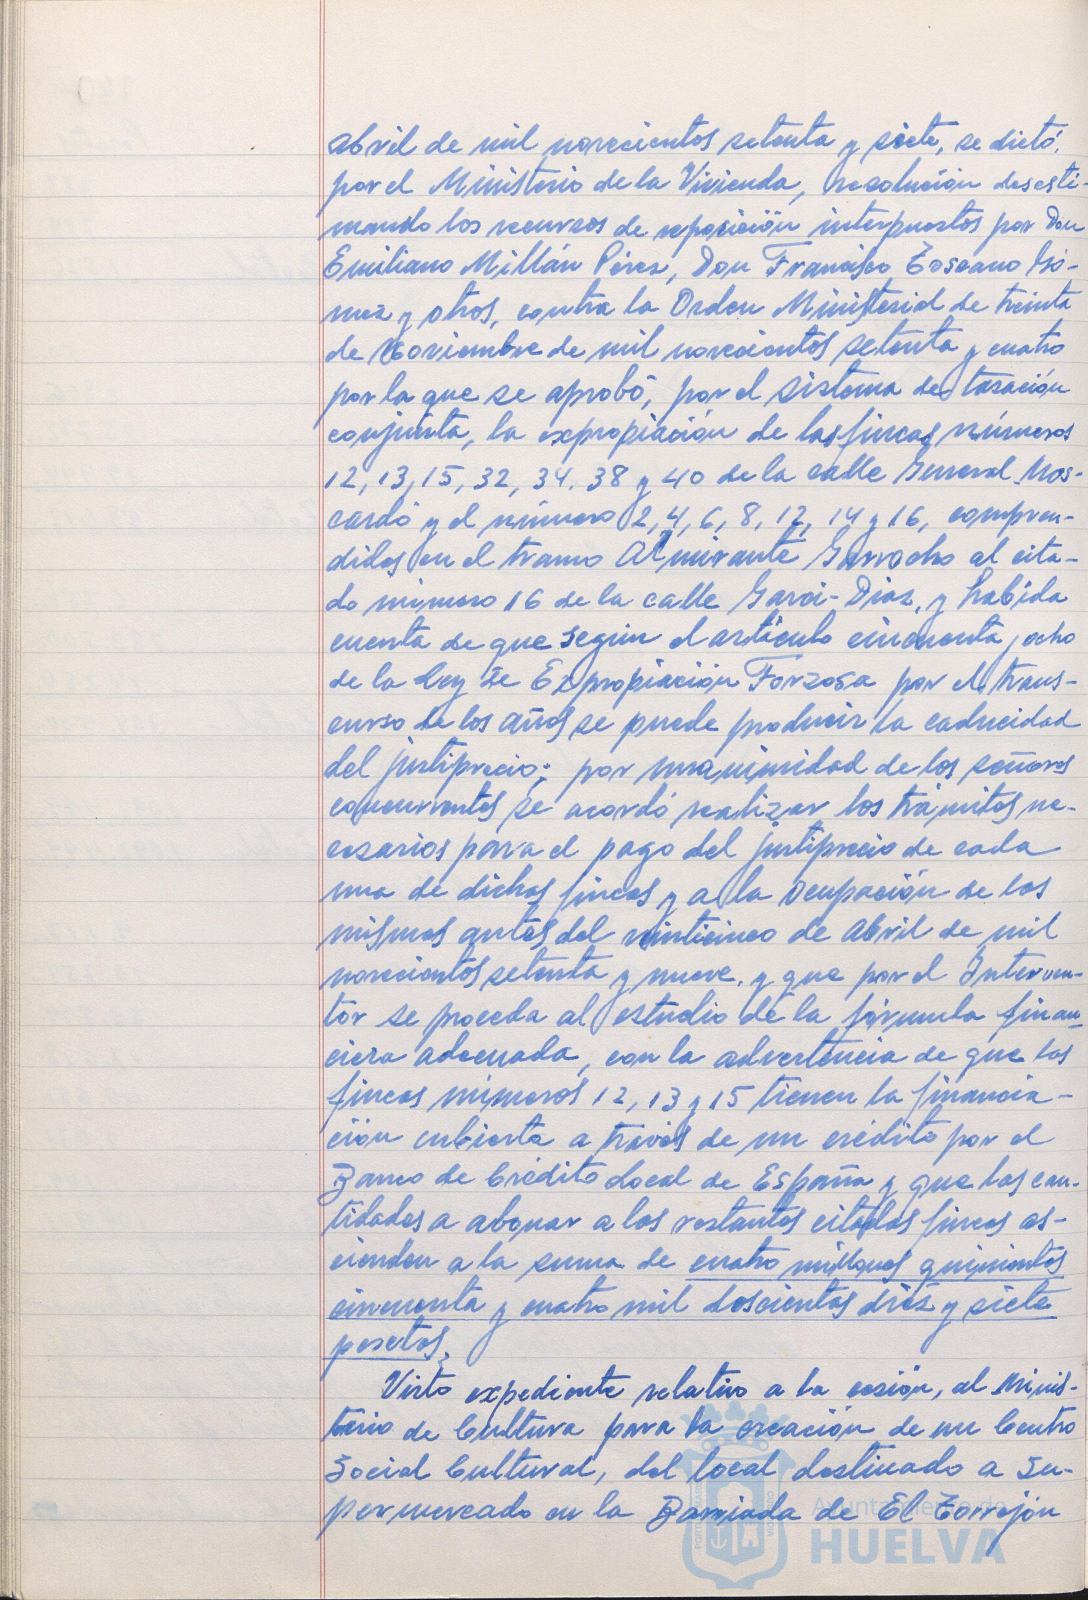 abril de mil novecientos setenta y siete, se dictó,
por el Ministerio de la Vivienda, resolución desesti-
mando los recursos de reposición interpuestos por Don
Emiliano Millán Pérez, Don Francisco Toscano Gó-
mez y otros, contra la Orden Ministerial de treinta
de Noviembre de mil novecientos setenta y cuatro
por la que se aprobó, por el sistema de tasación
conjunta, la expropiación de las fincas números
12, 13, 15, 32, 34, 38 y 40 de la calle General Mos-
cardó y el número 2, 4, 6, 8, 12, 14 y 16, compren-
didos en el tramo Almirante Garrocho al cita-
do número 16 de la calle Garci-Díaz, y habida
cuenta de que según el artículo cincuenta y ocho
de la Ley de Expropiación Forzosa por el trans-
curso de los años se puede producir la caducidad
del justiprecio; por unanimidad de los señores
concurrentes se acordó realizar los trámites ne-
cesarios para el pago del justiprecio de cada
una de dichas fincas y a la ocupación de las
mismas antes del veinticinco de Abril de mil
novecientos setenta y nueve, y que por el Interven-
tor se proceda al estudio de la fórmula finan-
ciera adecuada, con la advertencia de que las
fincas números 12, 13 y 15 tienen la financia-
ción cubierta a través de un crédito por el
Banco de Crédito Local de España y que las can-
tidades a abonar a los restantes citadas fincas as-
cienden a la suma de cuatro millones quinientas
cincuenta y cuatro mil doscientas diez y siete
pesetas.
Visto expediente relativo a la cesión, al Minis-
terio de Cultura para la creación de un Centro
Social Cultural, del local destinado a Su-
permercado en la Barriada de El Torrejón
Ayuntamiento de
HUELVA